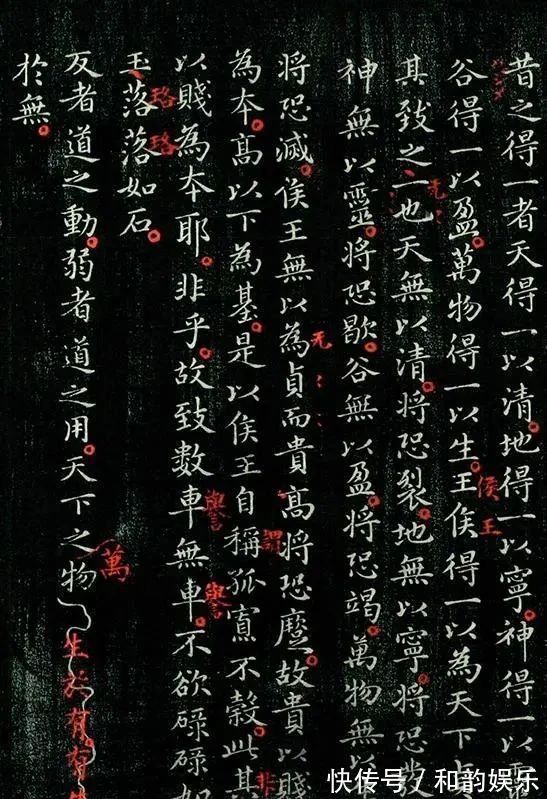 昔之得一者天得一以清地得一以寧神得一以靈
谷得一以盈萬物得一以生王侯得一以為天下貞
侯王
其致之一也天無以清將恐裂地無以寧將恐發
无
神無以靈將恐歇谷無以盈將恐竭萬物無以
將恐滅侯王無以為貞而貴高將恐蹙故貴以賤
无
為本高以下為基是以侯王自稱孤寡不穀此其
謂
非
以賤為本耶非乎故致數車無車不欲碌碌如
譽
譽
玉落落如石
珞珞
反者道之動弱者道之用天下之物
萬
生於有有生
於無
快传号/和韵娱乐